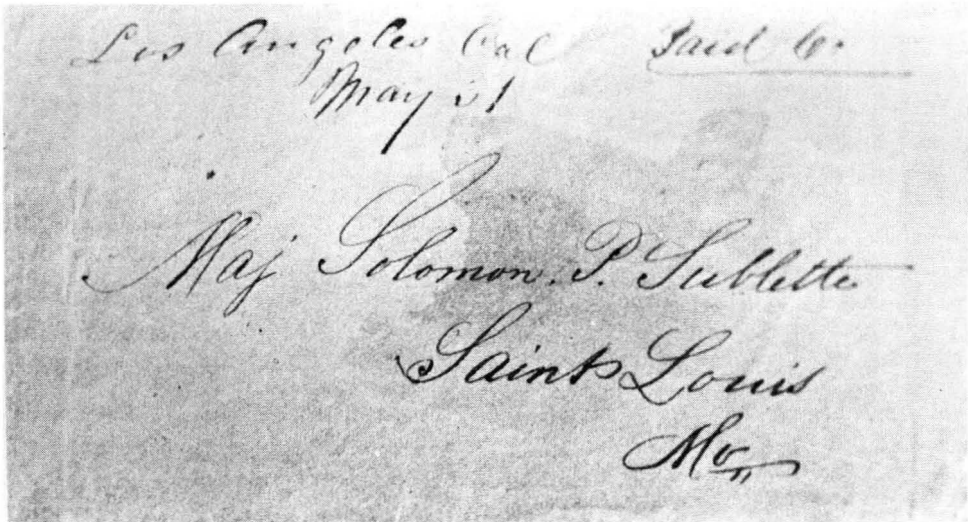 Los Angeles Cal Paid 6.
May 21
Maj Solomon. P. Sublette
Saint Louis
Mo